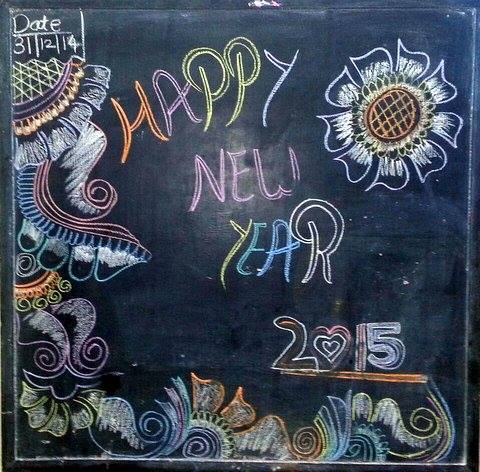 Date
31/12/14
HAPPY
NEW
YEAR
2015